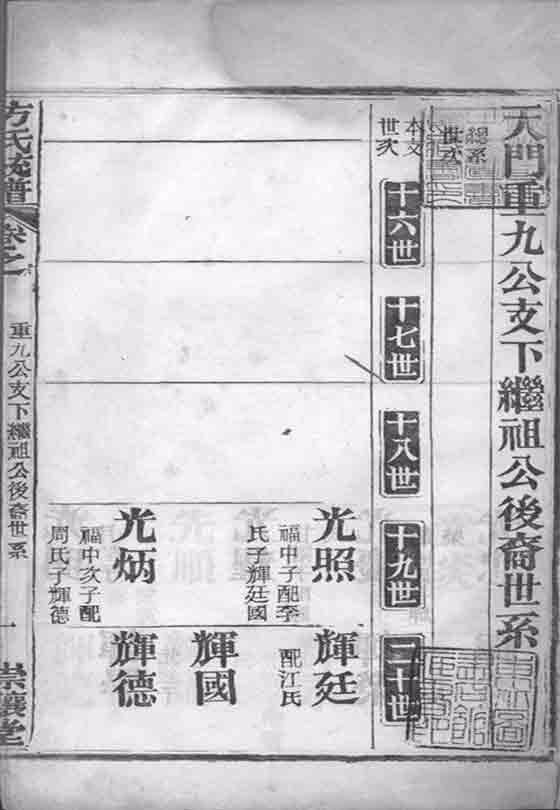 天門重九公支下繼祖公後裔世系
總系
世次
本支
世次
十六世
十七世
十八世
十九世
二十世
光照
福申子配李
氏子輝廷國
光炳
福申次子配
周氏子輝德
輝廷
配江氏
輝國
輝德
方氏族譜
卷之
重九公支下繼祖公後裔世系
一
崇讓堂